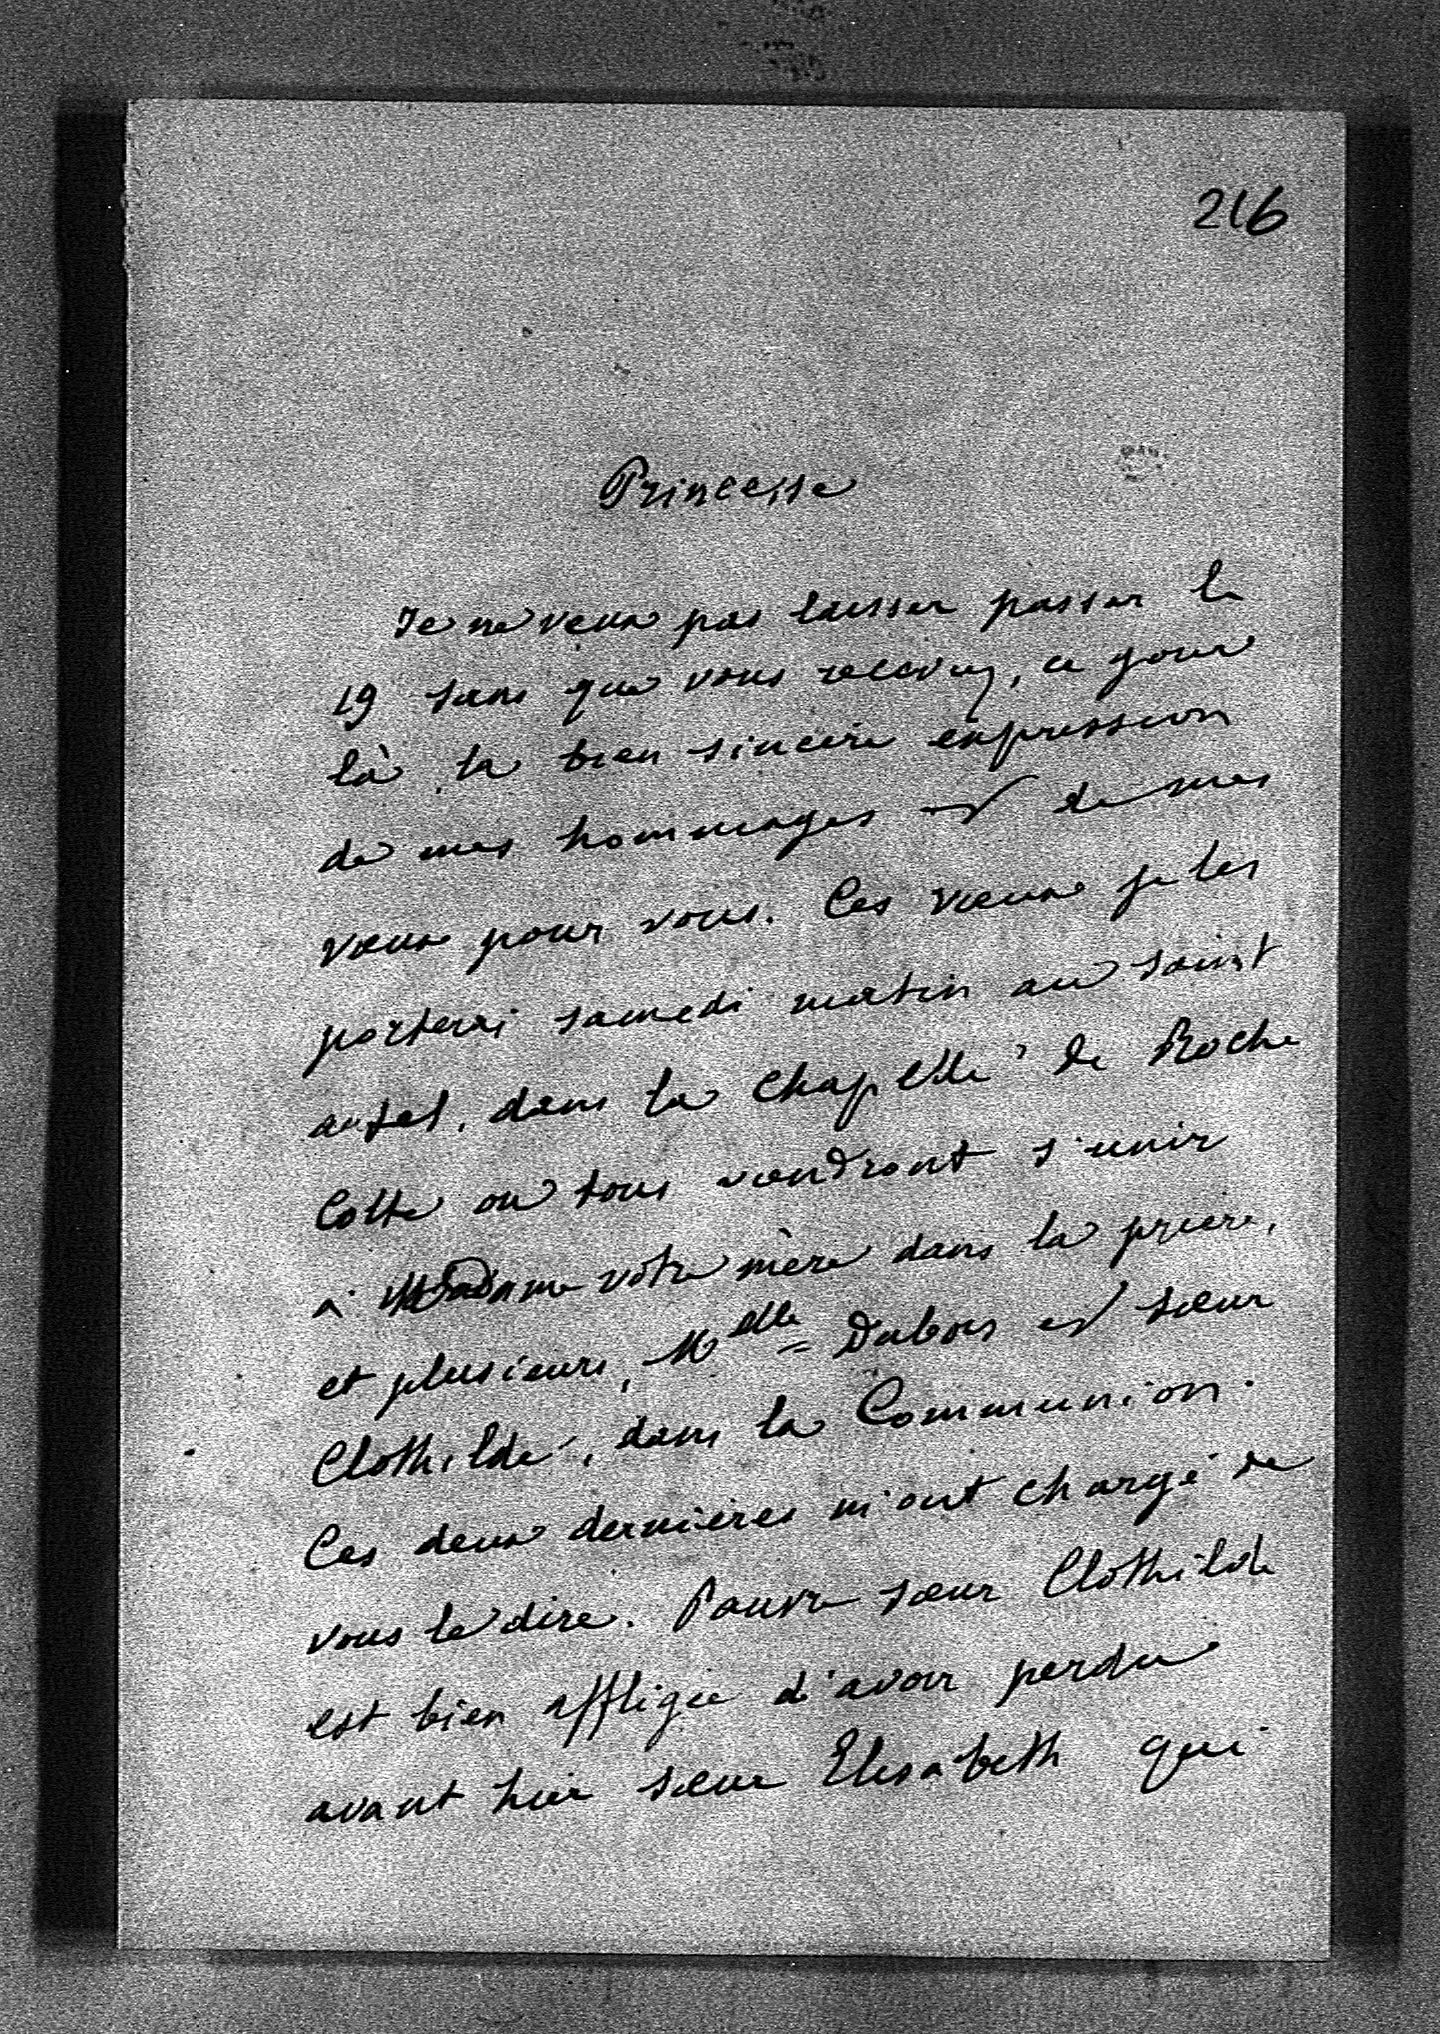 216
Princesse
Je ne veux pas laisser passer le
19 sans que vous receviez, ce jour
là, la bien sincère expression
de mes hommages et de mes
vœux pour vous. Ces vœux je les
porterai samedi matin au saint
autel, dans la chapelle de Roche
Cotte où tous viendront s'unir
à Madame votre mère dans la prière,
et plusieurs, Melle Dubois et sœur
Clothilde, dans la Communion.
Ces deux dernières m'ont chargé de
vous le dire. Pauvre sœur Clothilde
est bien affligée d'avoir perdu
avant hier sœur Elisabeth qui